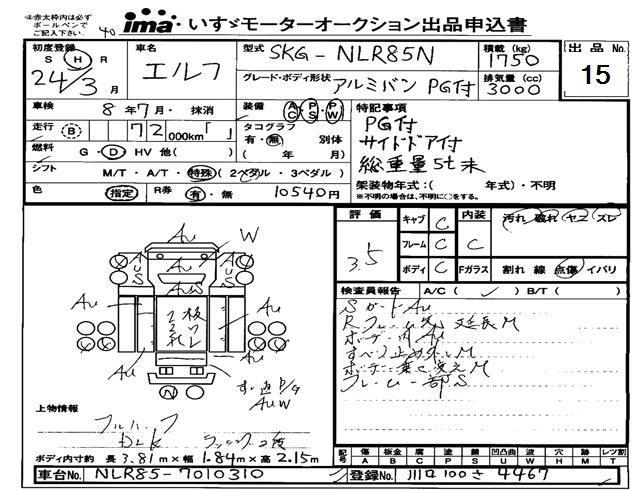 ※赤太枠内は必ず
ボールペンで
ご記入下さい。
40
ima いすゞモーターオークション出品申込書
出品No.
15
初度登録
S H R
24/3月
車名
エルフ
型式
SKG-NLR85N
積載(kg)
1750
グレード・ボディ形状
アルミバン PG付
排気量(cc)
3000
車検 8年7月・抹消
装備 AC・PS・PW
特記事項
PG付
サイドドア付
総重量5t未
走行 (B) 72 000km「 」
タコグラフ
有・無 別体
( 年 月)
燃料 G・D・HV 他( )
シフト M/T・A/T・特殊(2ペダル・3ペダル)
架装物年式:( 年式)・不明
※不明の場合は、不明に○をする。
色 指定 R券 有・無 10540円
評価
3.5
キャブ C
フレーム C
ボディ C
内装
C
Fガラス
汚れ 破れ ヤブ スレ
割れ 線 点傷 イバリ
検査員報告 A/C( ✓ ) B/T( )
SガードAu
Rフレーム先 延長M
すべり止め外しM
フレーム一部S
Au W
AuS AuS
AuS
Au Au
N
AuW
上物情報
ボディ内寸約 長3.81m×幅1.84m×高2.15m
記号 傷A 板金B 腐C 塗P 錆S 凹凸曲U 波W 穴H 跡M レツ割T
車台No. NLR85-7010310
登録No. 川口100さ4467